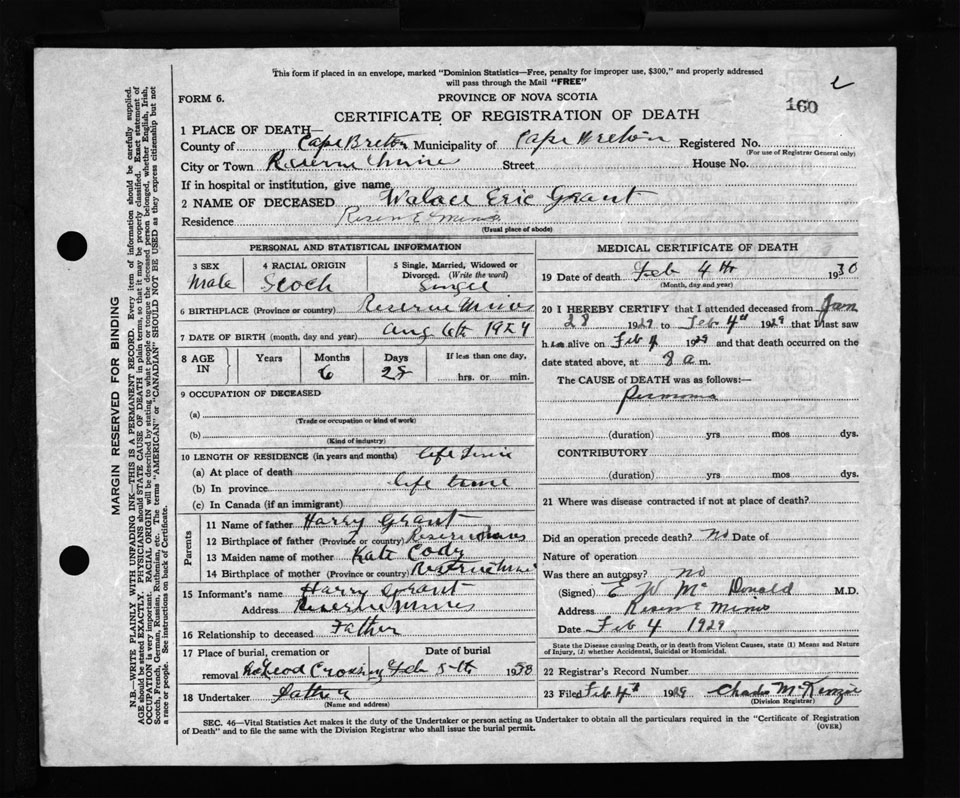 This form if placed in an envelope, marked "Dominion Statistics—Free, penalty for improper use, $300," and properly addressed
will pass through the Mail "FREE"
FORM 6.
PROVINCE OF NOVA SCOTIA
160
CERTIFICATE OF REGISTRATION OF DEATH
1 PLACE OF DEATH—
County of Cape Breton Municipality of Cape Breton Registered No.
(For use of Registrar General only)
City or Town Reserve Mines Street House No.
If in hospital or institution, give name
2 NAME OF DECEASED Walace Eric Grant
Residence Reserve Mines
(Usual place of abode)
PERSONAL AND STATISTICAL INFORMATION
3 SEX 4 RACIAL ORIGIN 5 Single, Married, Widowed or
Divorced. (Write the word)
Male Scoch Single
6 BIRTHPLACE (Province or country) Reserve Mines
7 DATE OF BIRTH (month, day and year) Aug 6th 1929
8 AGE IN Years Months Days If less than one day,
6 28 hrs. or min.
9 OCCUPATION OF DECEASED
(a)
(Trade or occupation or kind of work)
(b)
(Kind of industry)
10 LENGTH OF RESIDENCE (in years and months) life time
(a) At place of death
(b) In province life time
(c) In Canada (if an immigrant)
Parents
11 Name of father Harry Grant
12 Birthplace of father (Province or country) Reserve Mines
13 Maiden name of mother Kate Cody
14 Birthplace of mother (Province or country) Reserve Mines
15 Informant's name Harry Grant
Address Reserve Mines
16 Relationship to deceased Father
17 Place of burial, cremation or Date of burial
removal McLeod Crossing Feb 5th 1930
18 Undertaker Father
(Name and address)
MEDICAL CERTIFICATE OF DEATH
19 Date of death Feb 4th 1930
(Month, day and year)
20 I HEREBY CERTIFY that I attended deceased from Jan
28 1929 to Feb 4th 1929 that I last saw
h alive on Feb 1929 and that death occurred on the
date stated above, at 8 a m.
The CAUSE OF DEATH was as follows:—
(duration) yrs mos dys.
CONTRIBUTORY
(duration) yrs mos dys.
21 Where was disease contracted if not at place of death?
Did an operation precede death? No Date of
Nature of operation
Was there an autopsy? no
(Signed) E W McDonald M.D.
Address Reserve Mines
Date Feb 4 1929
State the Disease causing Death, or in death from Violent Causes, state (1) Means and Nature
of Injury, (2) whether Accidental, Suicidal or Homicidal.
22 Registrar's Record Number
23 Filed Feb 4th 1929 Charles McKenzie
(Division Registrar)
SEC. 46—Vital Statistics Act makes it the duty of the Undertaker or person acting as Undertaker to obtain all the particulars required in the "Certificate of Registration
of Death" and to file the same with the Division Registrar who shall issue the burial permit.
(OVER)
MARGIN RESERVED FOR BINDING
N.B.—WRITE PLAINLY WITH UNFADING INK—THIS IS A PERMANENT RECORD. Every item of information should be carefully supplied.
AGE should be stated EXACTLY. PHYSICIANS should STATE CAUSE OF DEATH in plain terms, so that it may be properly classified. Exact statement of
OCCUPATION is very important. RACIAL ORIGIN will be described by stating to what people or tongue the deceased person belonged, whether English, Irish,
Scotch, French, German, Russian, Ruthenian, etc. The terms "AMERICAN" or "CANADIAN" SHOULD NOT BE USED as they express citizenship but not
a race or people. See instructions on back of Certificate.